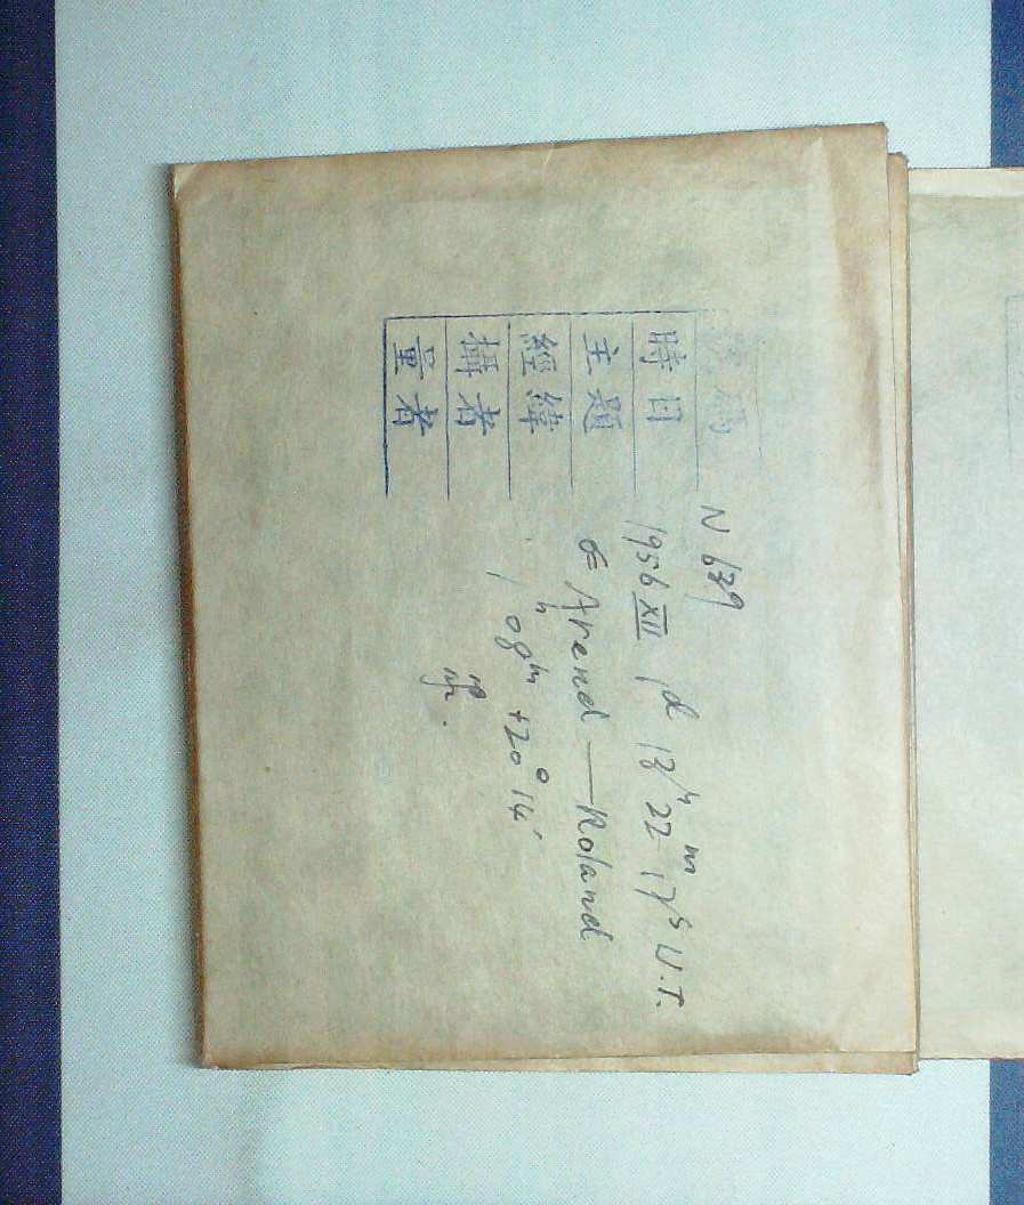 號碼 N 639
時日 1956 XII 1d 13h 22m 17s U.T.
主題 Arend—Roland
經緯 1h 09m +20°14′
攝者
量者